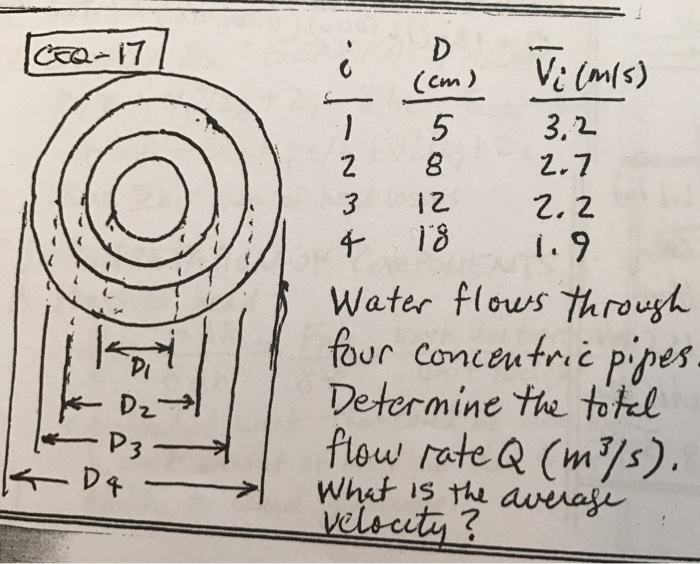 CEQ-17
i D V̅i (m/s)
(cm)
1 5 3.2
2 8 2.7
3 12 2.2
4 18 1.9
Water flows through
four concentric pipes.
Determine the total
flow rate Q (m³/s).
What is the average
velocity?
D1
D2
D3
D4